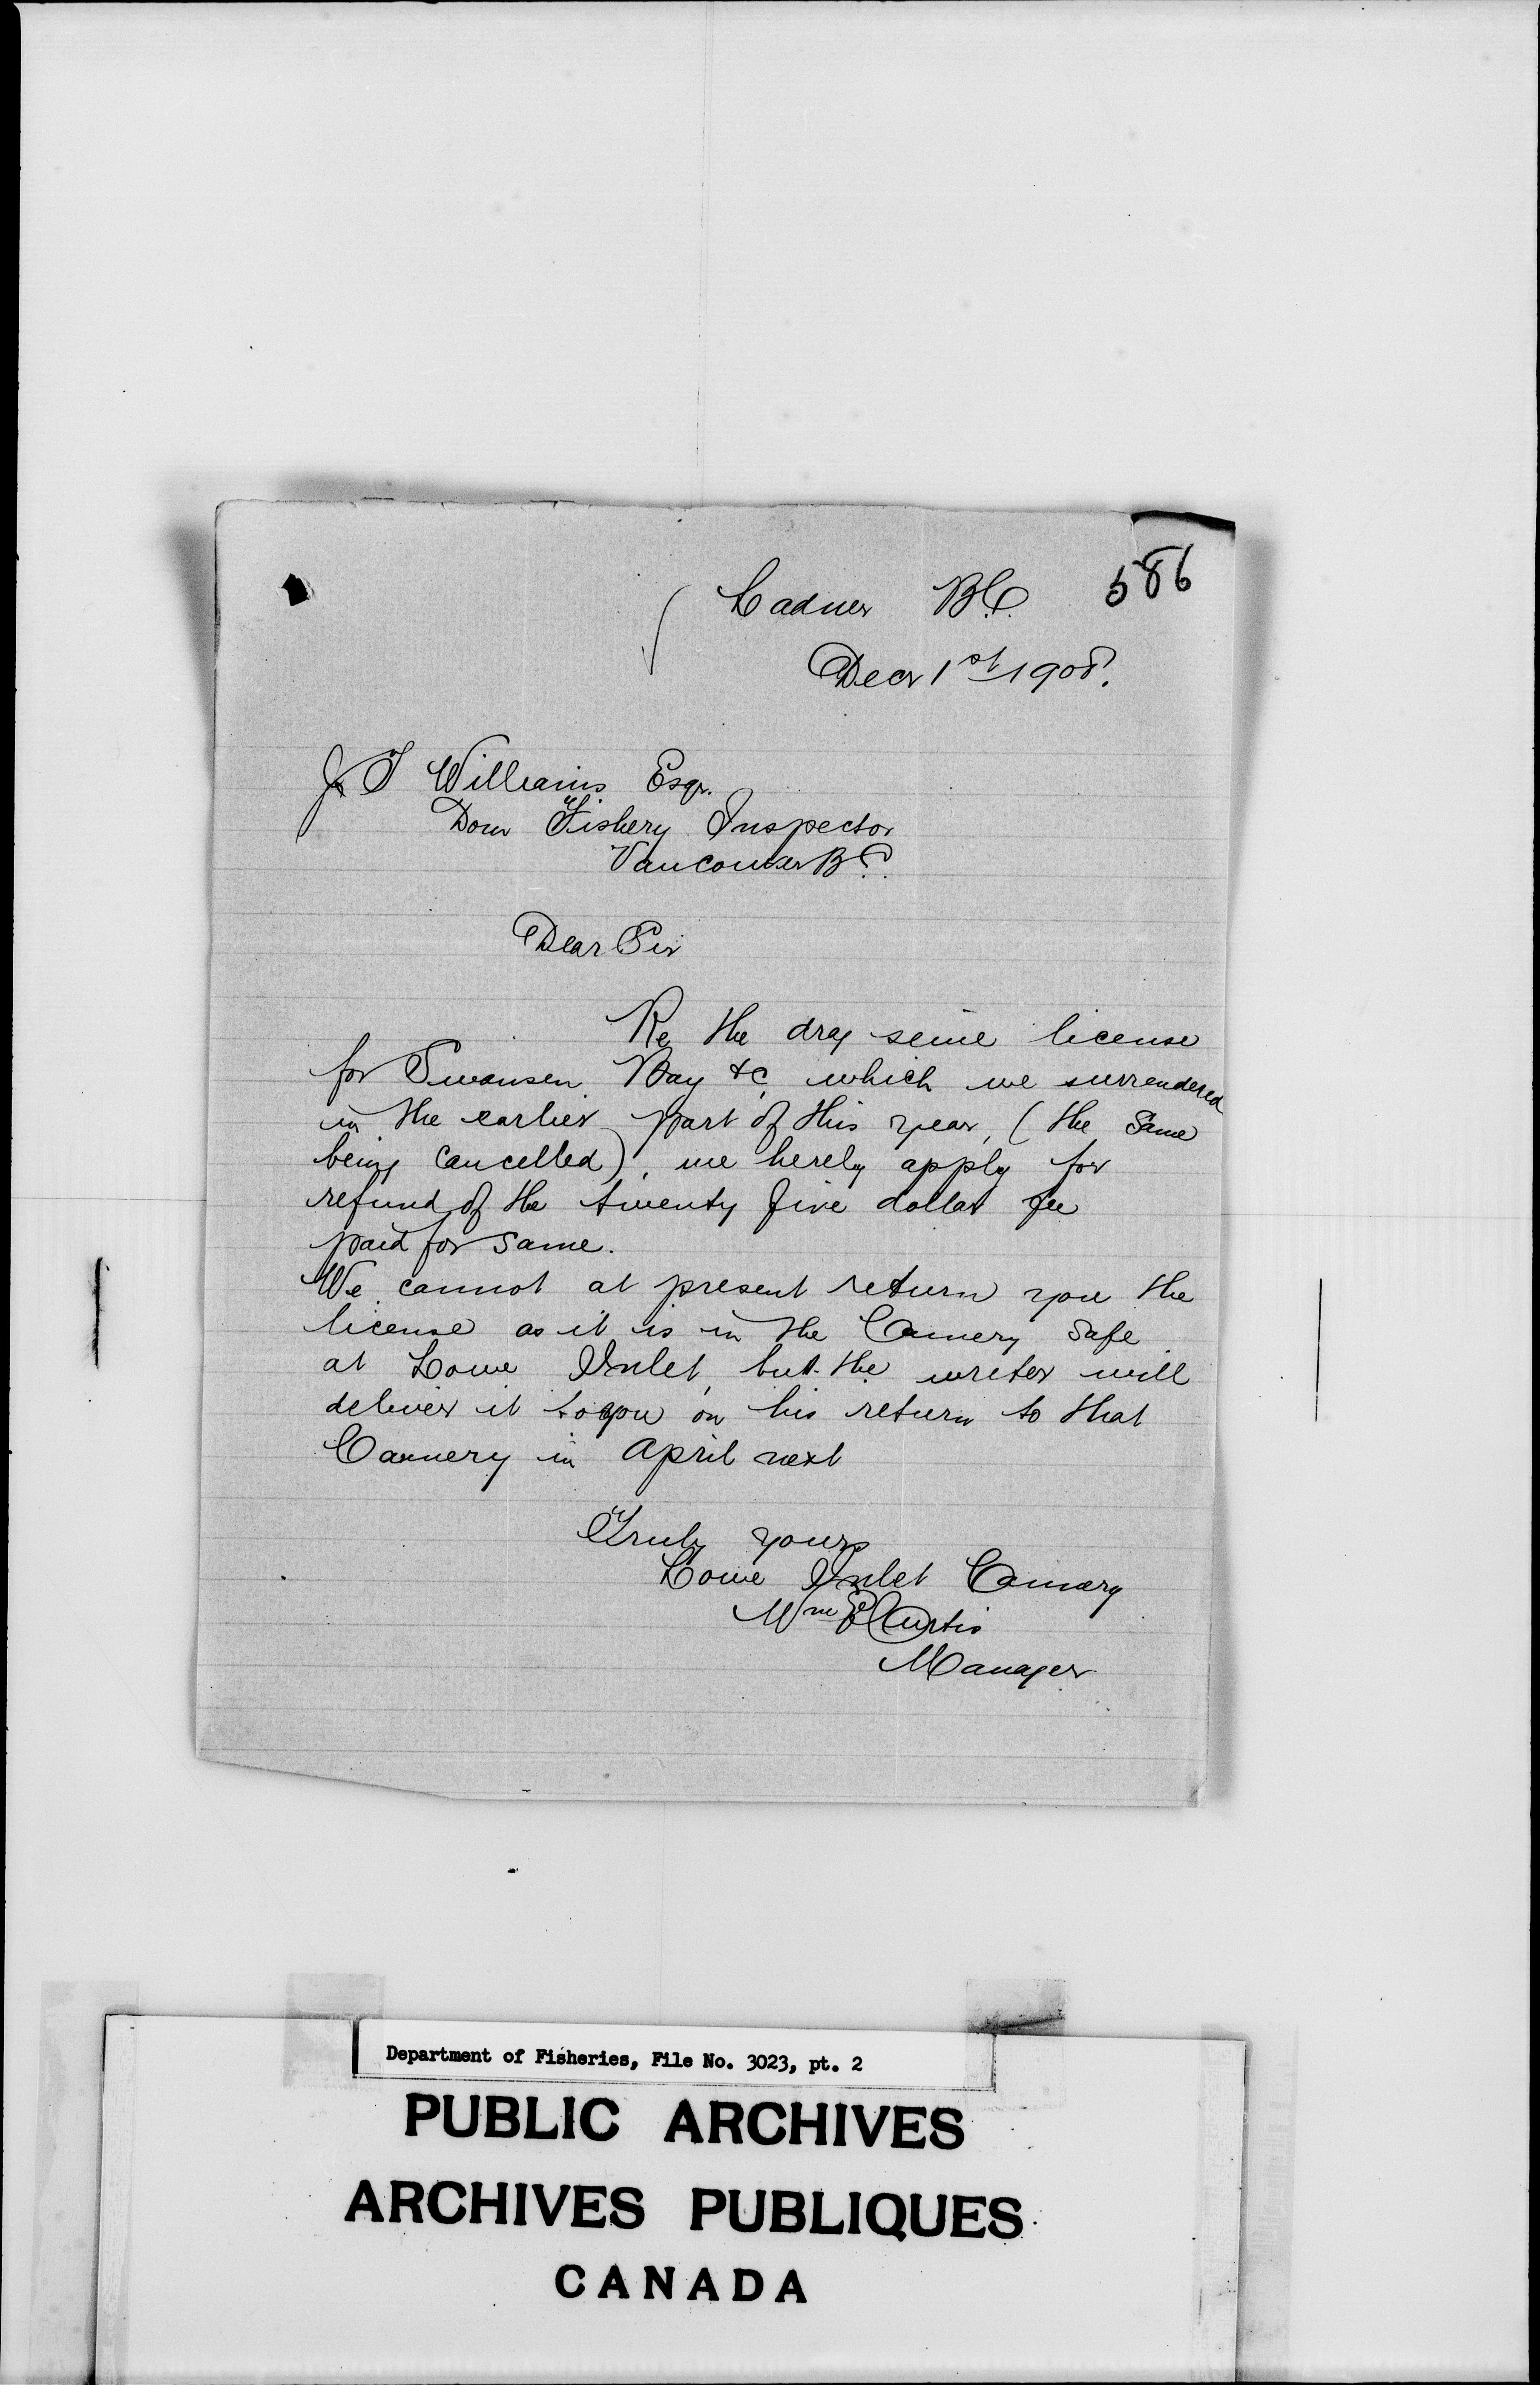 586
Ladner B.C.
Decr 1st 1908.
J T Williams Esqr.
Dom Fishery Inspector
Vancouver B.C.
Dear Sir
Re the drag seine license
for Swansen Bay &c, which we surrendered
in the earlier part of this year, (the same
being cancelled), we hereby apply for
refund of the twenty five dollar fee
paid for same.
We cannot at present return you the
license as it is in the Cannery safe
at Lowe Inlet, but the writer will
deliver it to you on his return to that
Cannery in April next
Truly yours
Lowe Inlet Cannery
Wm Curtis
Manager
Department of Fisheries, File No. 3023, pt. 2
PUBLIC ARCHIVES
ARCHIVES PUBLIQUES
CANADA